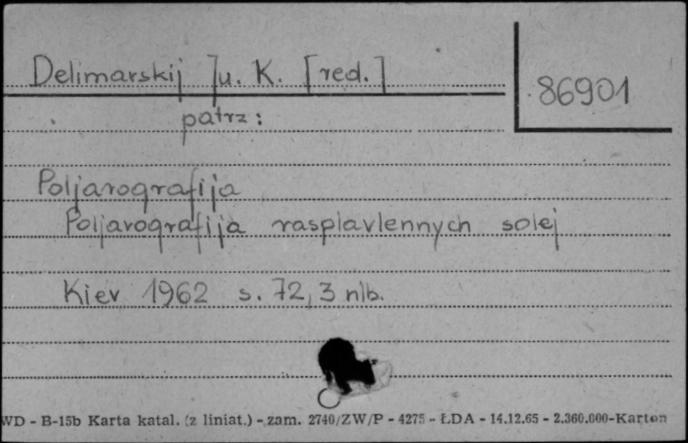 Delimarskij Ju. K. [red.]
86901
patrz:
Poljarografija
Poljarografija rasplavlennych solej
Kiev 1962 s. 72, 3 nlb.
WD - B-15b Karta katal. (z liniat.) - zam. 2740/ZW/P - 4275 - ŁDA - 14.12.65 - 2.360.000-Karton